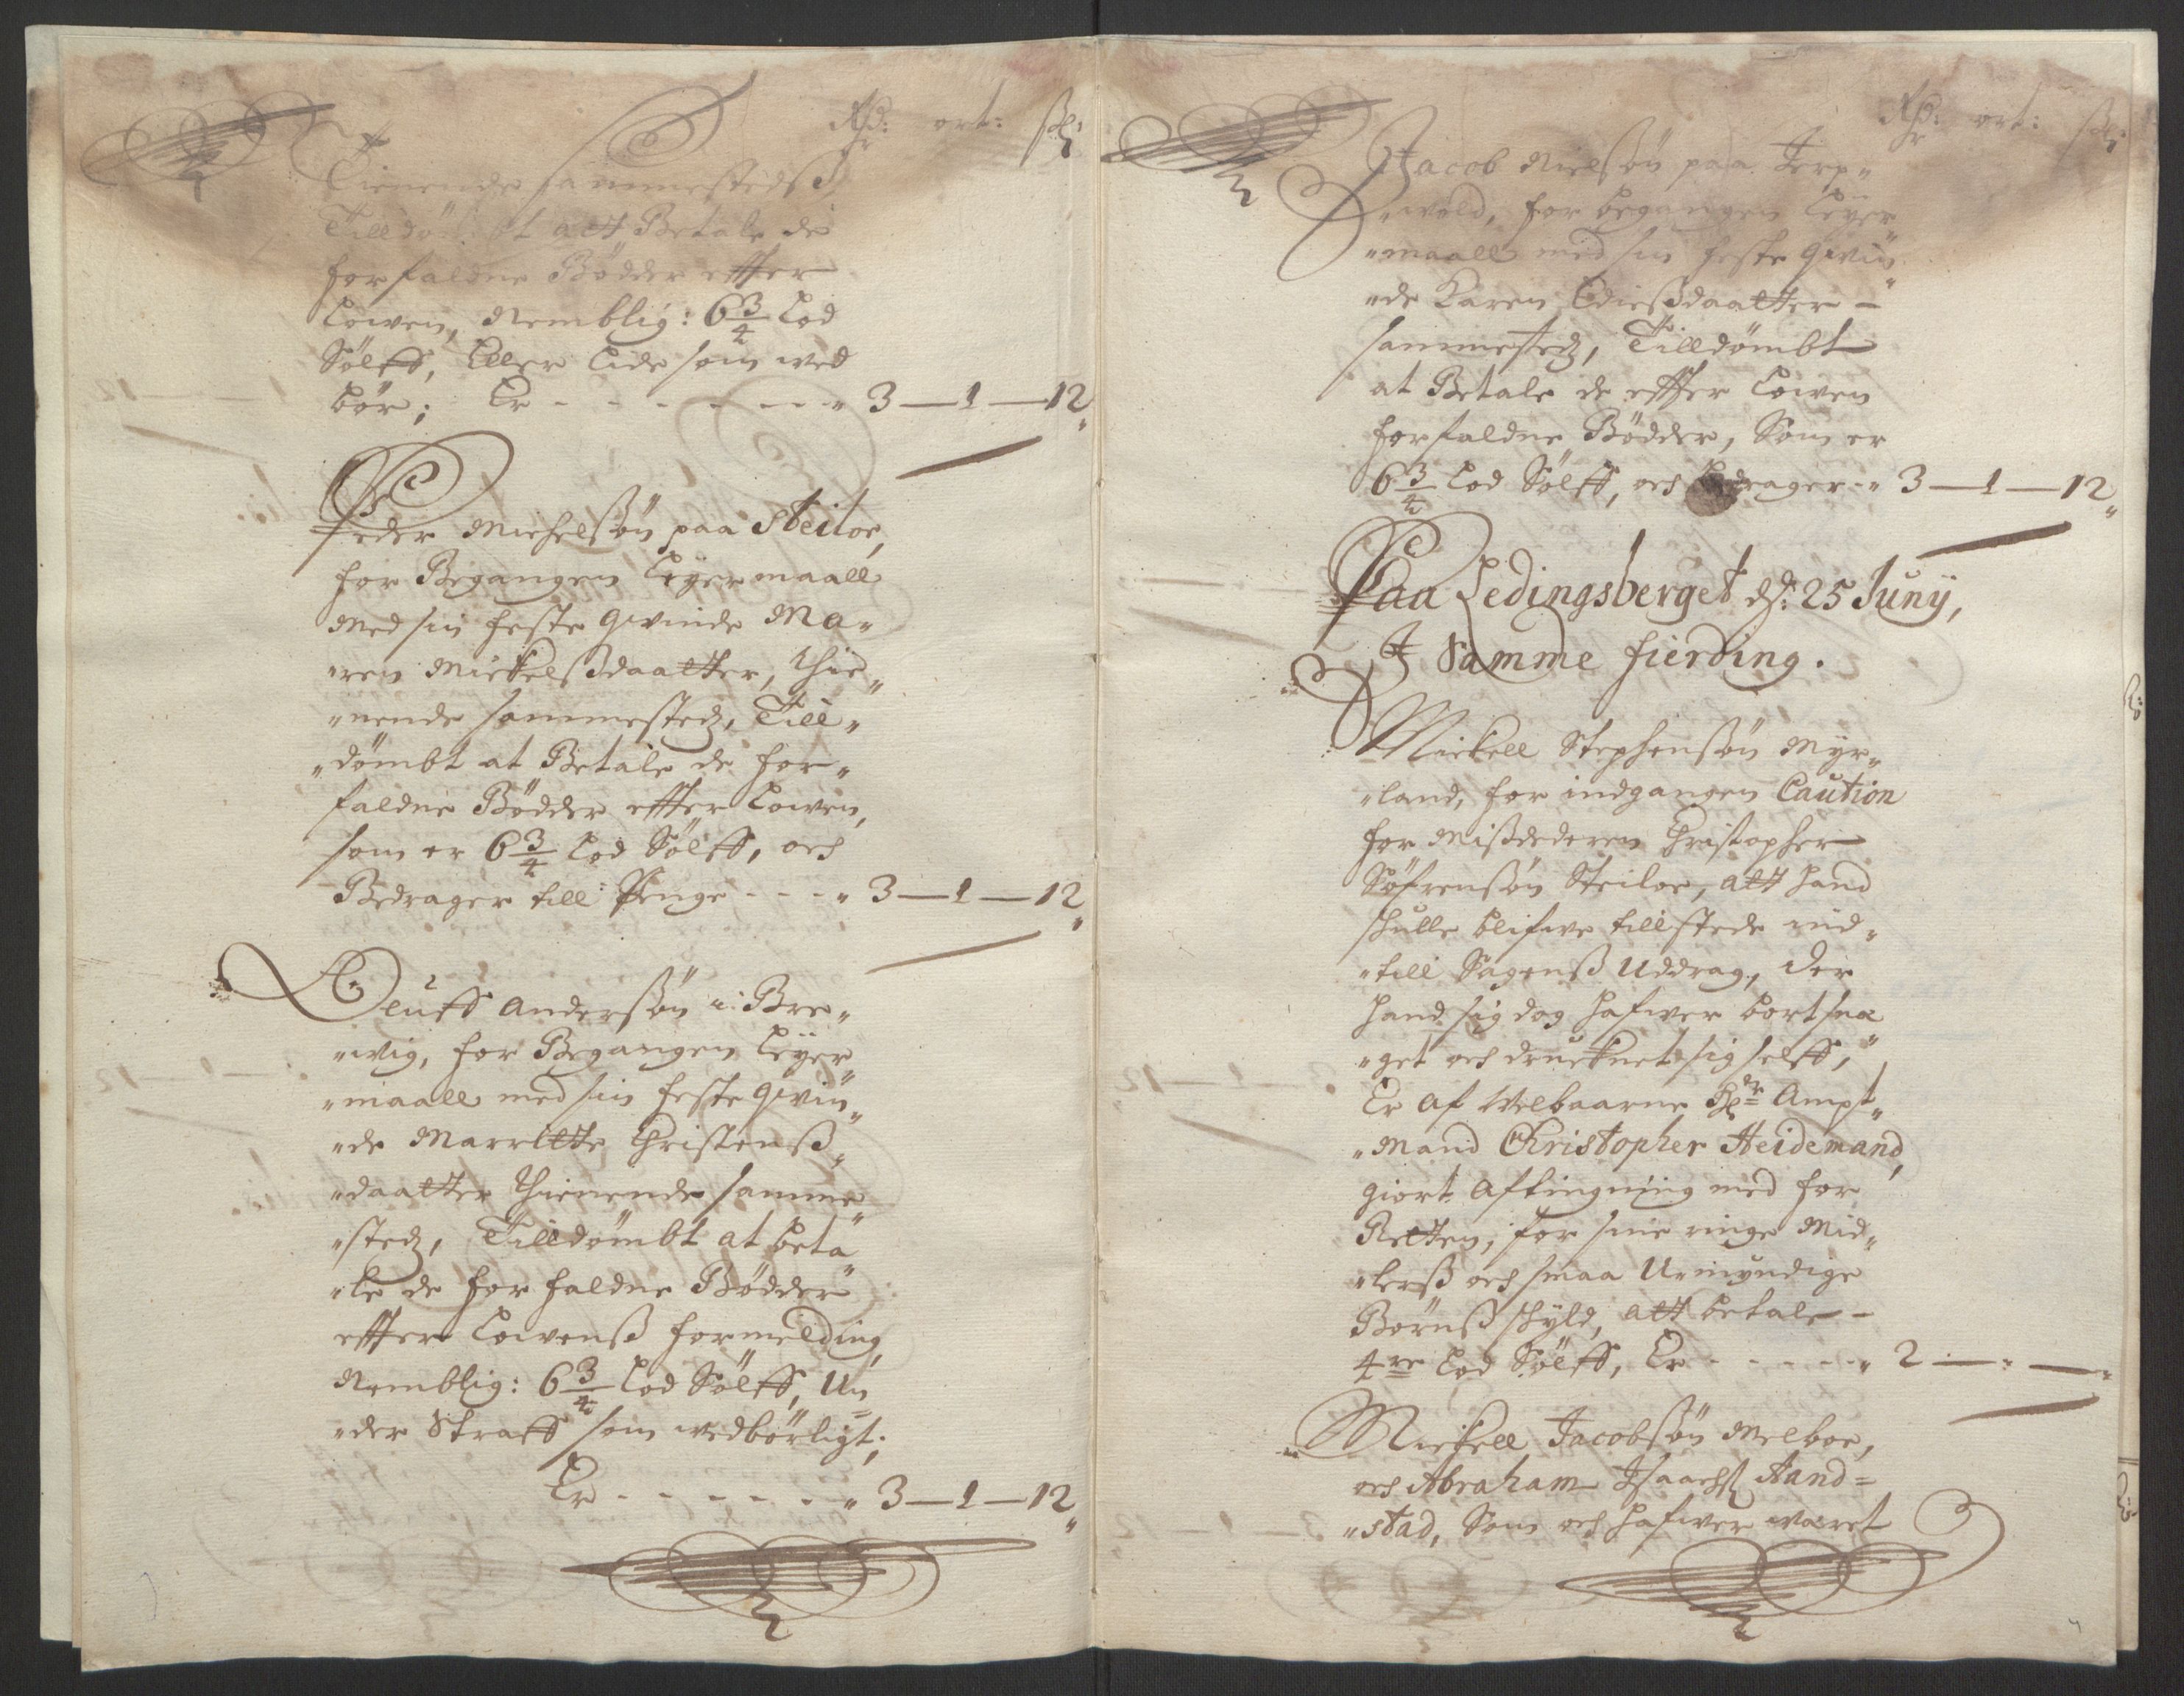 Rdr: ort: ſk:
Tienende sammestedß
Tilldömbt att Betale de
forfaldne Bödder effter
Lowen, Nemblig: 6 3/4 Lod
Sölff, Eller Lide som wed
bör; Er - - - - - - - „ 3 — 1 — 12„
Peder Michelsön paa Steiloe,
for Begangen Leyermaall
Med sin feste Qwinde Ma„
„ren Mickelßdaatter, thie„
„nende sammestedz, Till„
„dömbt at Betale de for„
faldne Bödder effter Lowen,
som er 6 3/4 Lod Sölff, och
Bedrager till Penge - - - „ 3 — 1 — 12„
Oluff Andersön i Bre„
„wig, for Begangen Leyer„
„maall med sin feste Qwin„
„de Marrette Christenß„
„daatter thienende samme„
„stedz, Tilldömbt at beta„
„le de forfaldne Bödder
effter Lowenß formelding,
Nemblig: 6 3/4 Lod Sölff, Un„
„der Straff som wedbörligt;
Er - - - - - - „ 3 — 1 — 12„
Rdr: ort: ſk:
Jacob Nielsön paa Jerp„
„wold, for begangen Leyer„
„maall med sin feste Qwin„
„de Karen Edießdaatter –
sammestedz, Tilldömbt
at Betale de effter Lowen
forfaldne Bödder, Som er
6 3/4 Lod Sölff, och Bedrager - „ 3 — 1 — 12„
Paa Ledingsberget d: 25 Junÿ,
J Samme fierding.
Mickell Stephensön Myr„
„land, for indgangen Caution
for Mißdederen Christopher
Söfrensön Steiloe, att hand
skulle blifwe tillstede ind„
„till Sagenß Uddrag, der
hand sig dog hafwer bortsnee
„get och drucknet sig self,
Er af Welbaarne Hr Ampt„
„Mand Christopher Heidemand,
giort aftingning med for
Retten, for sine ringe Mid„
„lerß och smaa Umyndige
Börnß skyld, att betale –
4re Lod Sölff, Er - - - - - „ 2 — „ — „
Mickell Jacobsön Melboe,
och Abraham Isaachß Aand=
„stad, Som och hafwer wæret